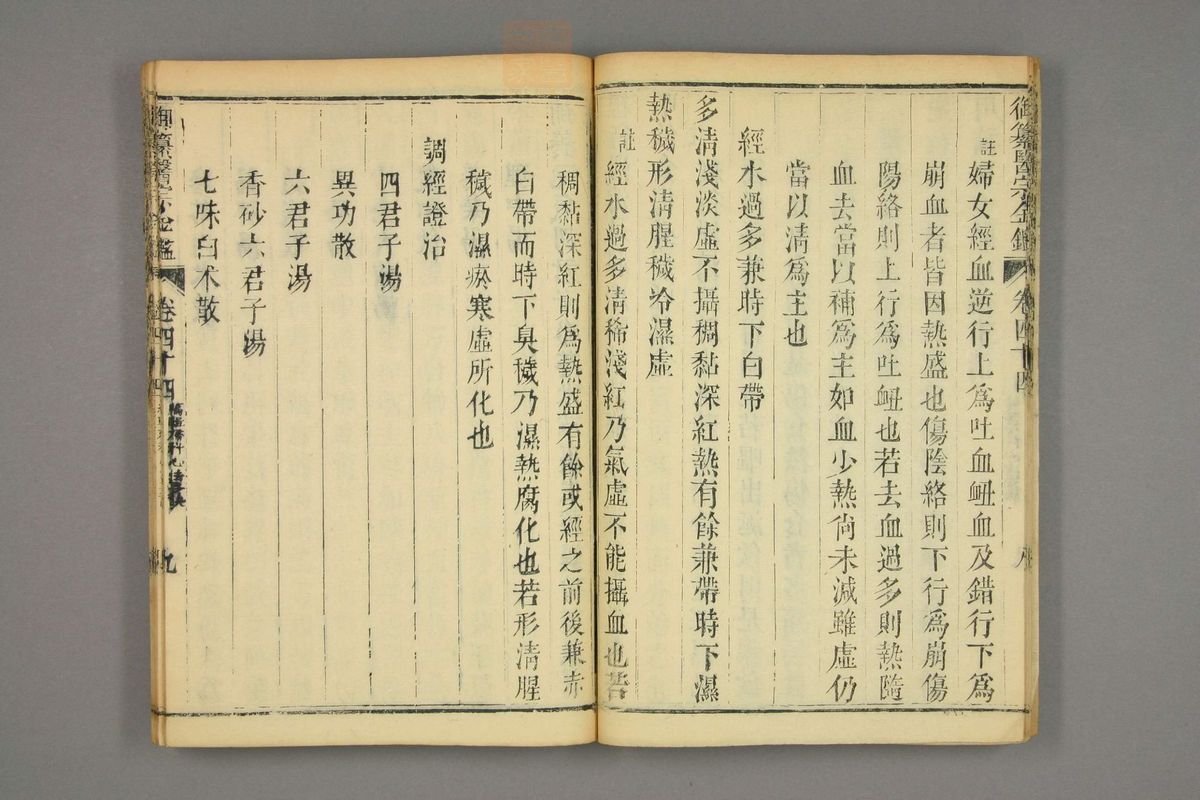 御纂醫宗金鑑 卷四十四 八
註婦女經血逆行上爲吐血衄血及錯行下爲
崩血者皆因熱盛也傷陰絡則下行爲崩傷
陽絡則上行爲吐衄也若去血過多則熱隨
血去當以補爲主如血少熱尚未減雖虛仍
當以淸爲主也
經水過多兼時下白帶
多淸淺淡虛不攝稠黏深紅熱有餘兼帶時下濕
熱穢形淸腥穢冷濕虛
註經水過多淸稀淺紅乃氣虛不能攝血也若
稠黏深紅則爲熱盛有餘或經之前後兼赤
白帶而時下臭穢乃濕熱腐化也若形淸腥
穢乃濕瘀寒虛所化也
調經證治
四君子湯
異功散
六君子湯
香砂六君子湯
七味白朮散
御纂醫宗金鑑 卷四十四 九